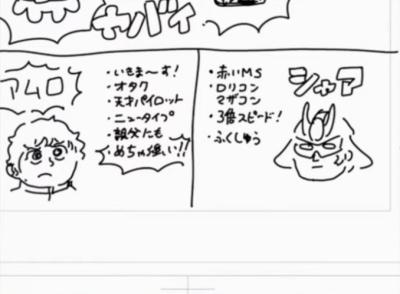 ヤバイ
アムロ
・いきま〜す!
・オタク
・天才パイロット
・ニュータイプ
・親父にも
めちゃ強い!!
シャア
・赤いMS
・ロリコン
マザコン
・3倍スピード!
・ふくしゅう